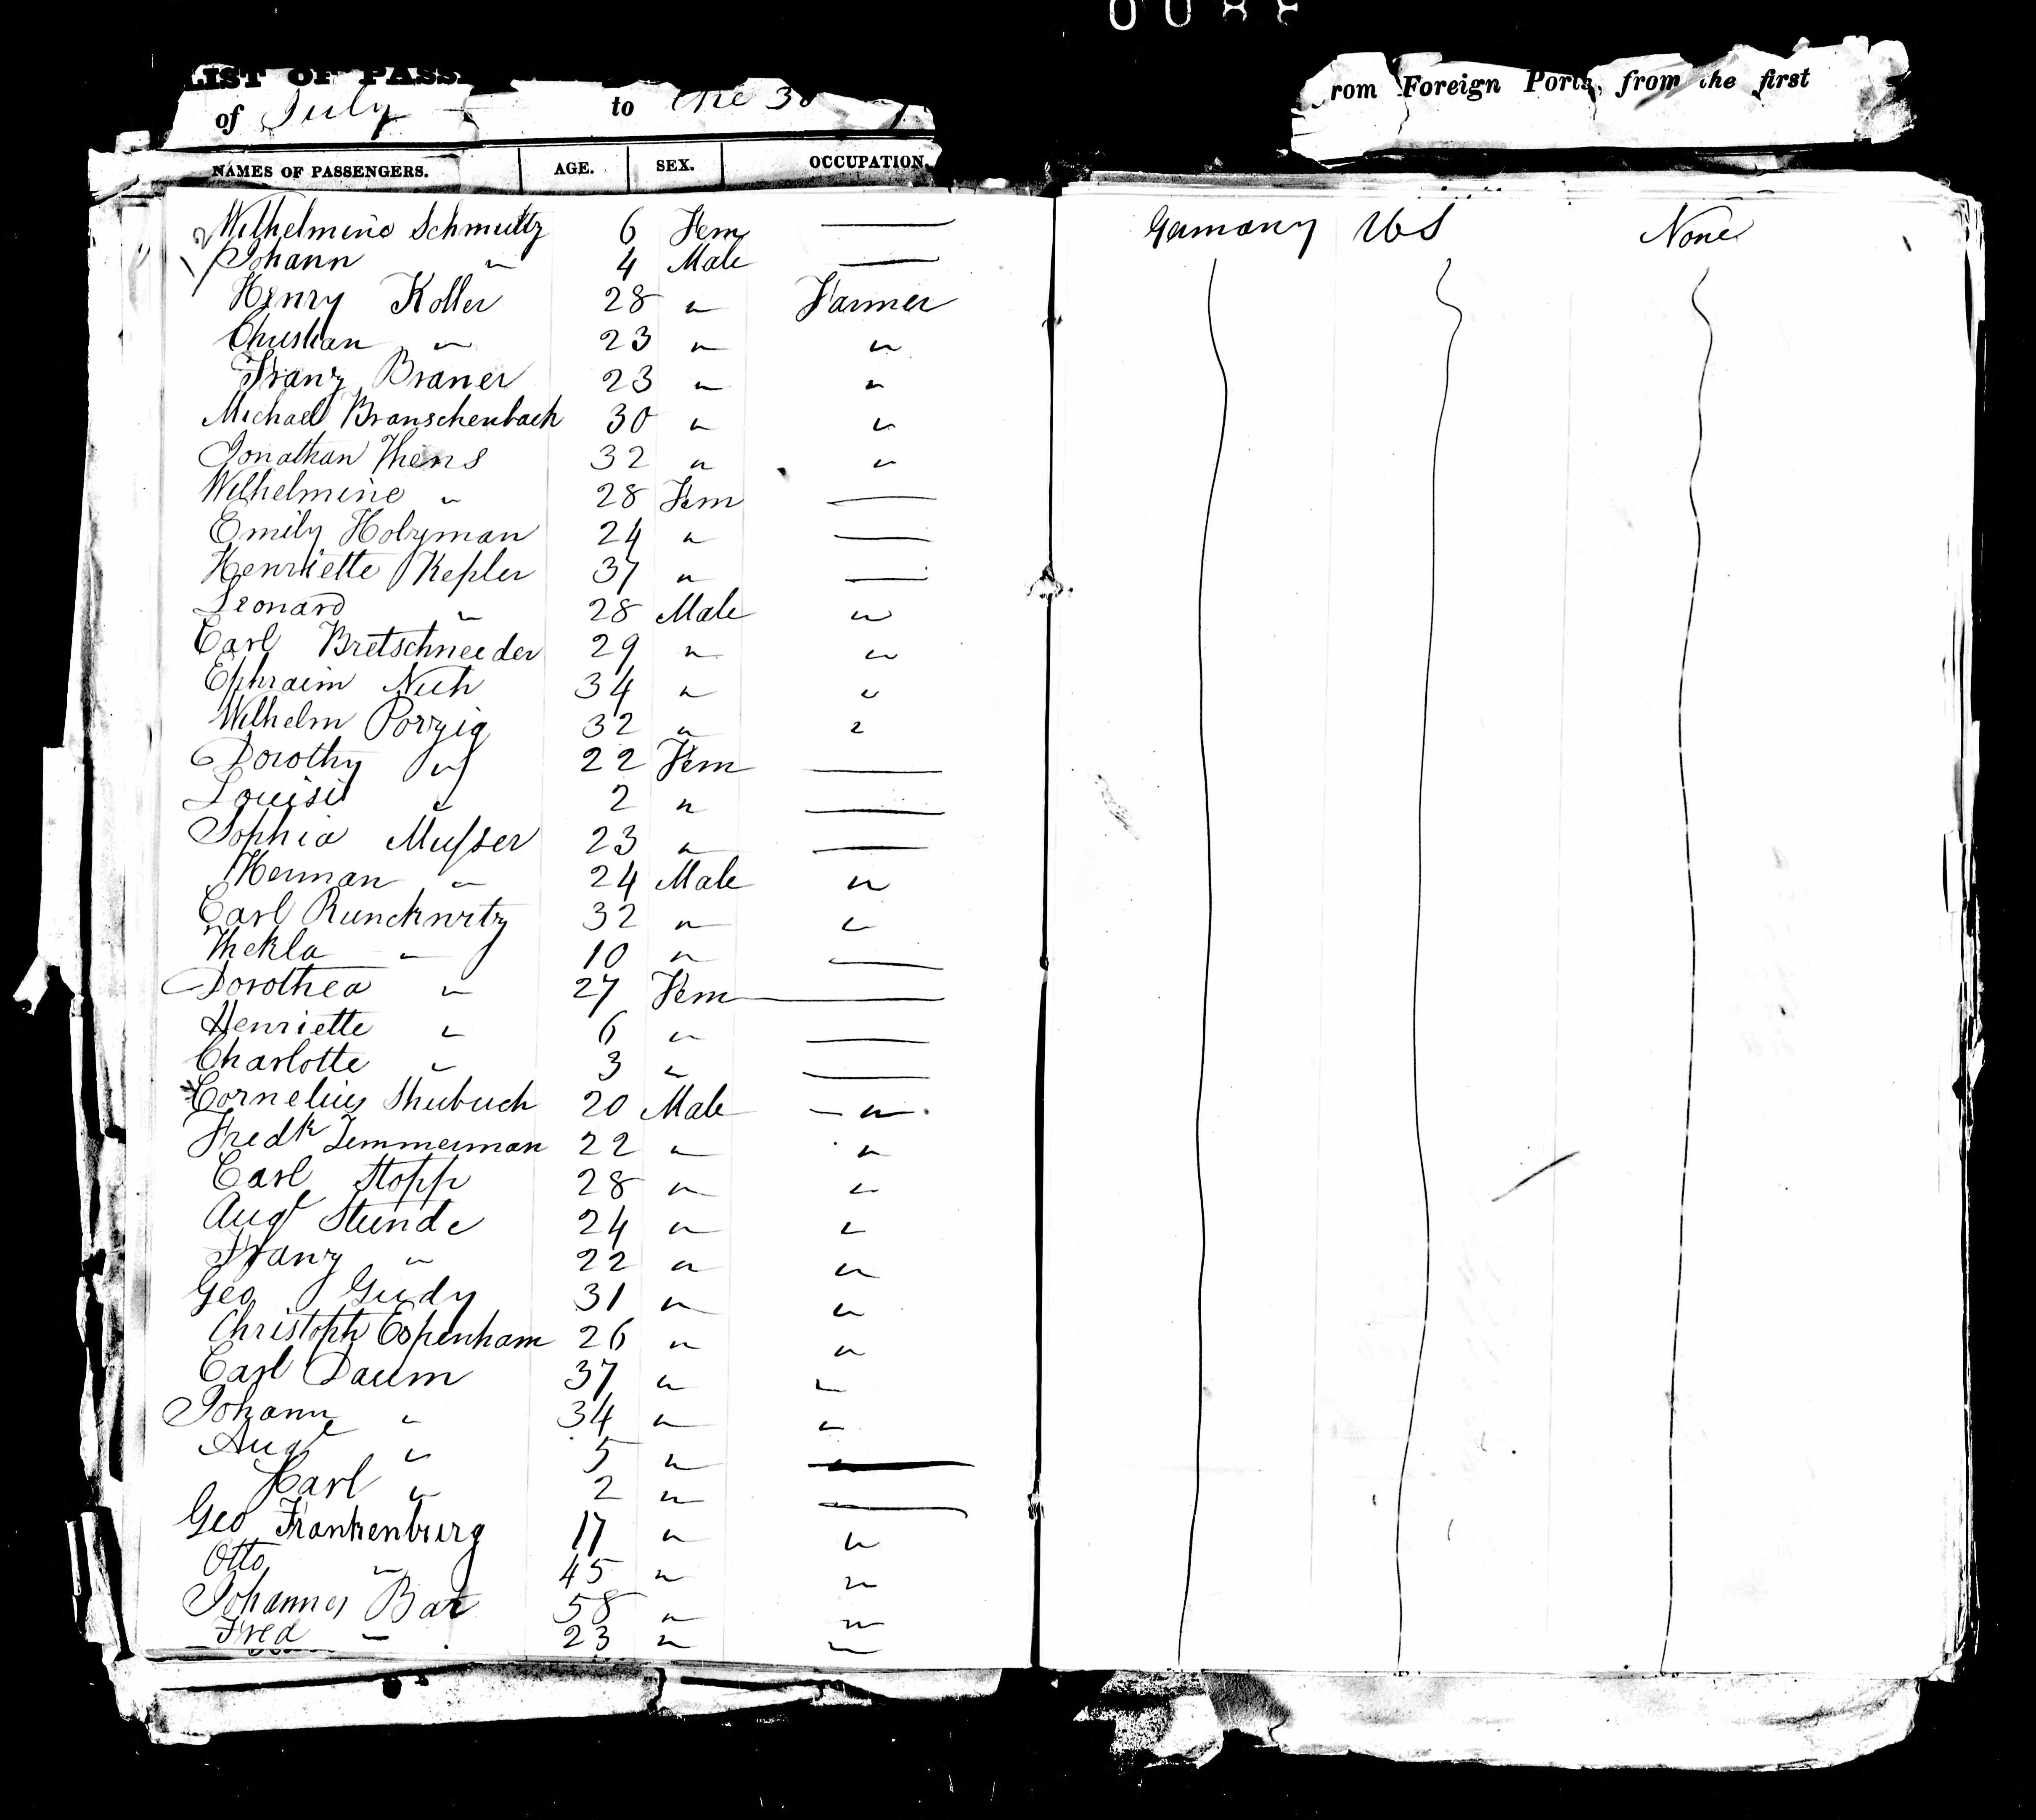 LIST OF PASS
rom Foreign Ports, from the first
of July to the 30
NAMES OF PASSENGERS. AGE. SEX. OCCUPATION.
Wilhelmine Schmultz 6 Fem — Germany US None
Johann " 4 Male —
Henry Koller 28 " Farmer
Christian " 23 " "
Franz Braner 23 " "
Michael Branschenbach 30 " "
Jonathan Thens 32 " "
Wilhelmine " 28 Fem —
Emily Holzman 24 " —
Henriette Kepler 37 " —
Leonard " 28 Male "
Carl Bretschneeder 29 " "
Ephraim Nuth 34 " "
Wilhelm Porzig 32 " "
Dorothy " 22 Fem —
Louise " 2 " —
Sophia Musser 23 " —
Herman " 24 Male "
Carl Runcknitz 32 " "
Thekla " 10 " —
Dorothea " 27 Fem —
Henriette " 6 " —
Charlotte " 3 " —
Cornelius Shubuch 20 Male "
Fredk Zemmerman 22 " "
Carl Stopp 28 " "
Augt Stunde 24 " "
Franz " 22 " "
Geo Gudy 31 " "
Christoph Espenham 26 " "
Carl Daum 37 " "
Johann " 34 " "
Augt " 5 " —
Karl " 2 " —
Geo Frankenburg 17 " "
Otto " 45 " "
Johannes Bar 58 " "
Fred " 23 " "